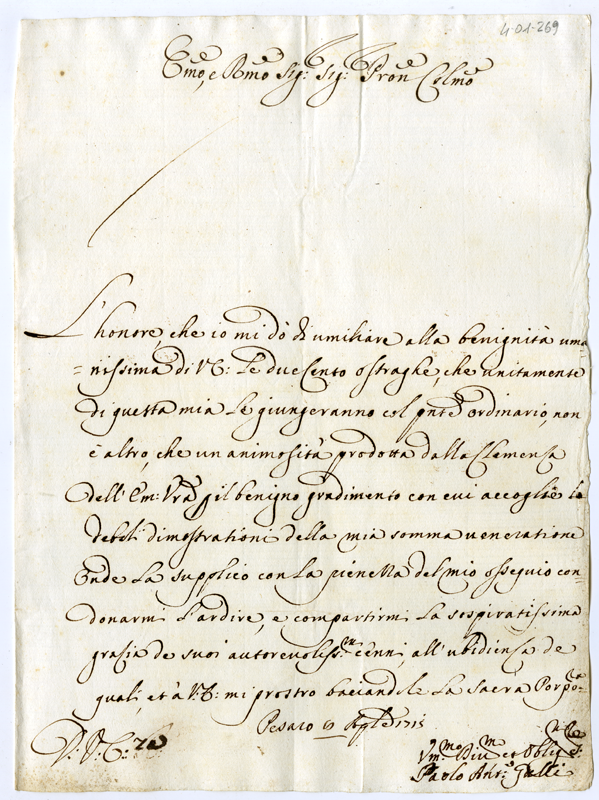 4-01-269
Emo, e Rmo Sig: Sig: Pron Colmo
L'honore, che io mi dò di umiliare alla benignità uma=
=nissima di V.E: Le duecento ostraghe, che unitamente
di questa mia Le giungeranno col pnte ordinario, non
è altro, che un animosità prodotta dalla Clemenza
dell'Em: Vra p il benigno gradimento con cui accoglie le
debeli dimostrationi della mia somma veneratione
Onde La supplico con La pienezza del mio osseguio con-
donarmi L'ardire, e compartirmi La sospiratissima
grazia de suoi autorevoliss.mi cenni, all'ubidienza de
quali, et à V.E: mi prostro baciandole La Sacra Porp.ra
Pesaro 9
1715
D: V: E: za
Vmo Divmo et Obligmo Se:
Paolo Ant.o Gulli